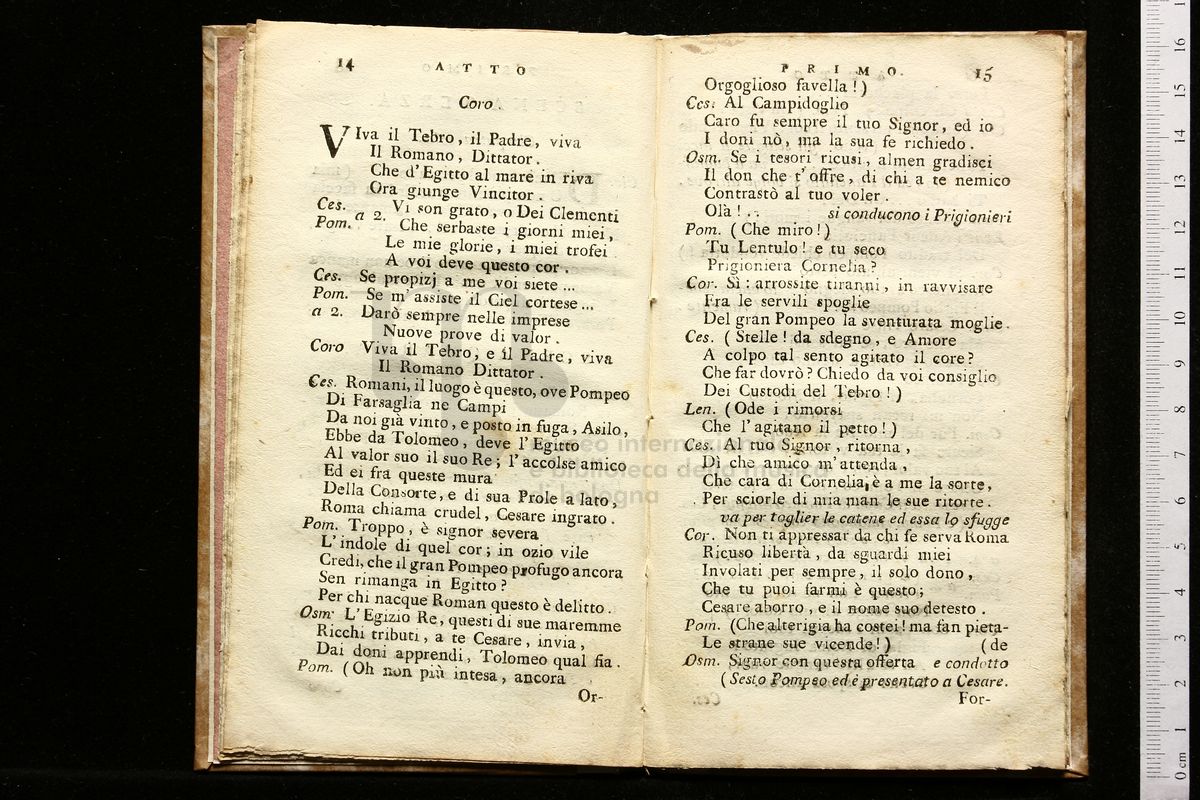 14 ATTO
Coro
VIva il Tebro, il Padre, viva
Il Romano, Dittator.
Che d'Egitto al mare in riva
Ora giunge Vincitor.
Ces. Pom. a 2. Vi son grato, o Dei Clementi
Che serbaste i giorni miei,
Le mie glorie, i miei trofei
A voi deve questo cor.
Ces. Se propizj a me voi siete ...
Pom. Se m'assiste il Ciel cortese ...
a 2. Darò sempre nelle imprese
Nuove prove di valor.
Coro Viva il Tebro, e il Padre, viva
Il Romano Dittator.
Ces. Romani, il luogo è questo, ove Pompeo
Di Farsaglia ne Campi
Da noi già vinto, e posto in fuga, Asilo,
Ebbe da Tolomeo, deve l'Egitto
Al valor suo il suo Re; l'accolse amico
Ed ei fra queste mura
Della Consorte, e di sua Prole a lato,
Roma chiama crudel, Cesare ingrato.
Pom. Troppo, è signor severa
L'indole di quel cor; in ozio vile
Credi, che il gran Pompeo profugo ancora
Sen rimanga in Egitto?
Per chi nacque Roman questo è delitto.
Osm. L'Egizio Re, questi di sue maremme
Ricchi tributi, a te Cesare, invia,
Dai doni apprendi, Tolomeo qual sia.
Pom. (Oh non più intesa, ancora
Or-
PRIMO. 15
Orgoglioso favella!)
Ces: Al Campidoglio
Caro fu sempre il tuo Signor, ed io
I doni nò, ma la sua fe richiedo.
Osm. Se i tesori ricusi, almen gradisci
Il don che t'offre, di chi a te nemico
Contrastò al tuo voler.
Olà! .. si conducono i Prigionieri
Pom. (Che miro!)
Tu Lentulo! e tu seco
Prigioniera Cornelia?
Cor. Sì: arrossite tiranni, in ravvisare
Fra le servili spoglie
Del gran Pompeo la sventurata moglie.
Ces. (Stelle! da sdegno, e Amore
A colpo tal sento agitato il core?
Che far dovrò? Chiedo da voi consiglio
Dei Custodi del Tebro!)
Len. (Ode i rimorsi
Che l'agitano il petto!)
Ces. Al tuo Signor, ritorna,
Dì che amico m'attenda,
Che cara di Cornelia, è a me la sorte,
Per sciorle di mia man le sue ritorte.
va per toglier le catene ed essa lo sfugge
Cor. Non ti appressar da chi fe serva Roma
Ricuso libertà, da sguardi miei
Involati per sempre, il solo dono,
Che tu puoi farmi è questo;
Cesare aborro, e il nome suo detesto.
Pom. (Che alterigia ha costei! ma fan pieta-
Le strane sue vicende!) (de
Osm. Signor con questa offerta e condotto
(Sesto Pompeo ed è presentato a Cesare.
For-